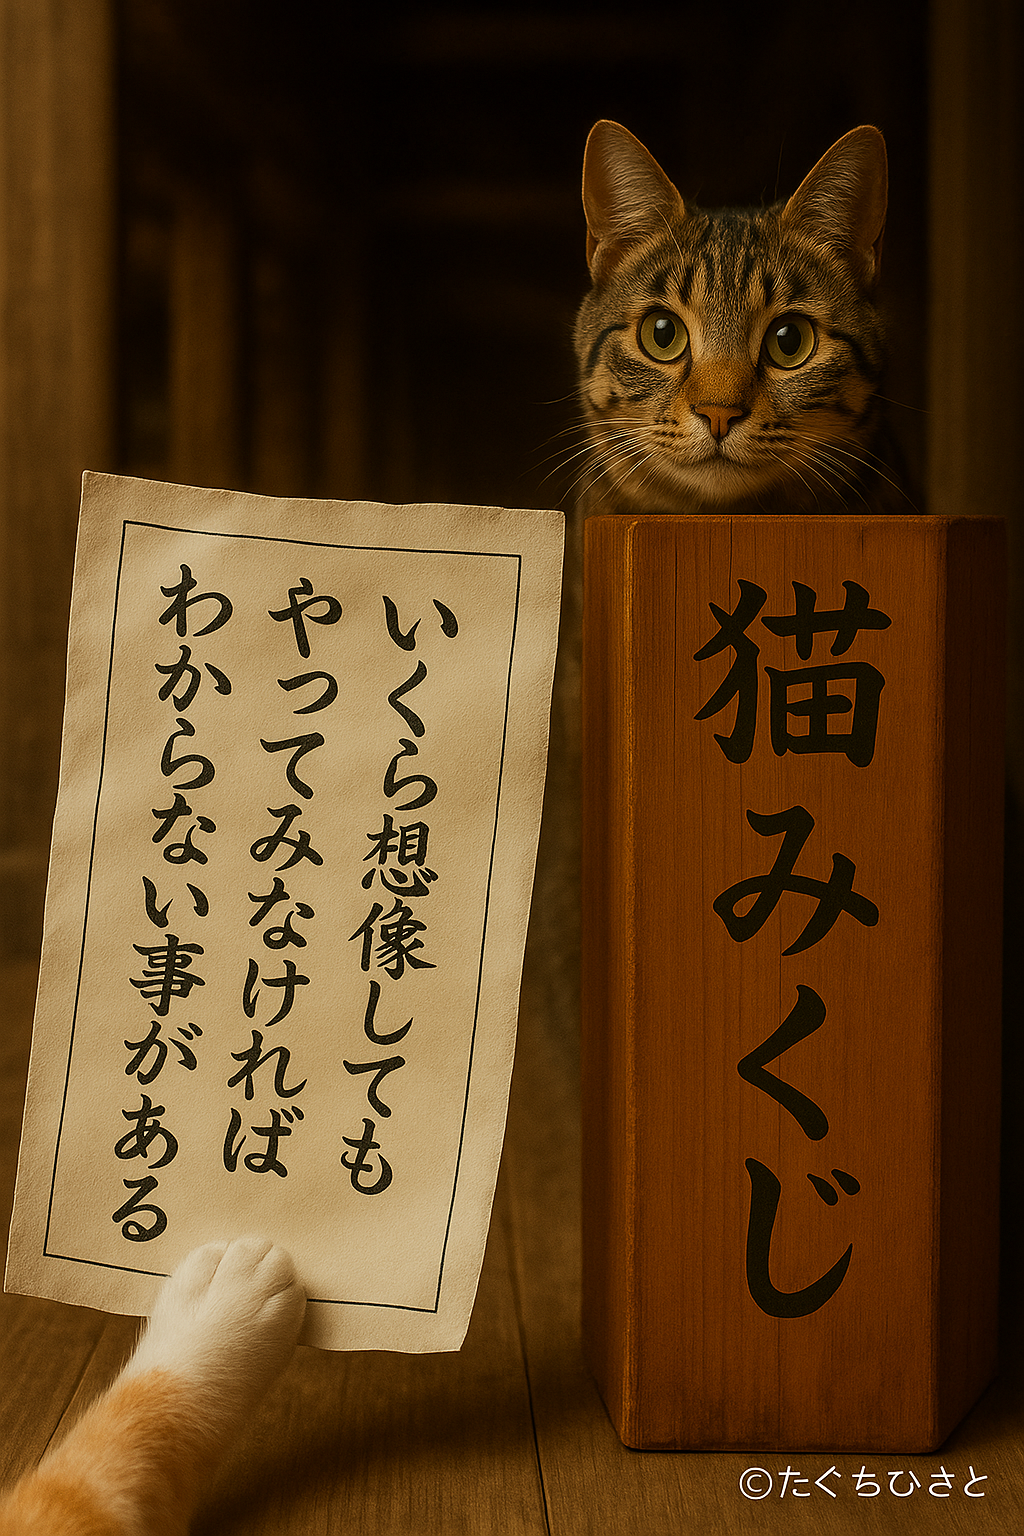 いくら想像しても
やってみなければ
わからない事がある
猫みくじ
©たぐちひさと